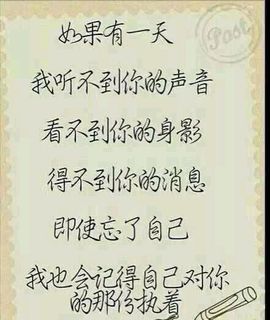 Post
如果有一天
我听不到你的声音
看不到你的身影
得不到你的消息
即使忘了自己
我也会记得自己对你
的那份执着